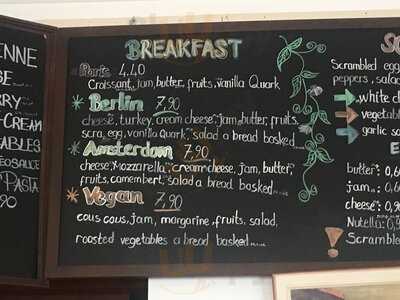 ENNE
BE
RRY
-CREAM
TABLES
EOSAUCE
PASTA
90
BREAKFAST
Paris 4.40
Croissant, jam, butter, fruits, vanilla Quark
* Berlin 7,90
cheese, turkey, cream cheese, jam, butter, fruits,
scra, egg, vanilla Quark, salad a bread basked....
* Amsterdam 7,90
cheese, mozzarella, cream cheese, jam, butter,
fruits, camembert, salad a bread basked....
* Vegan 7,90
cous cous, jam, margarine, fruits, salad,
roasted vegetables a bread basked....
SC
Scrambled egg
peppers, salad
white ch
vegetab
garlic sa
E
butter: 0,6
jam: 0,6
cheese: 0,9
Nutella: 0,9
! Scramble